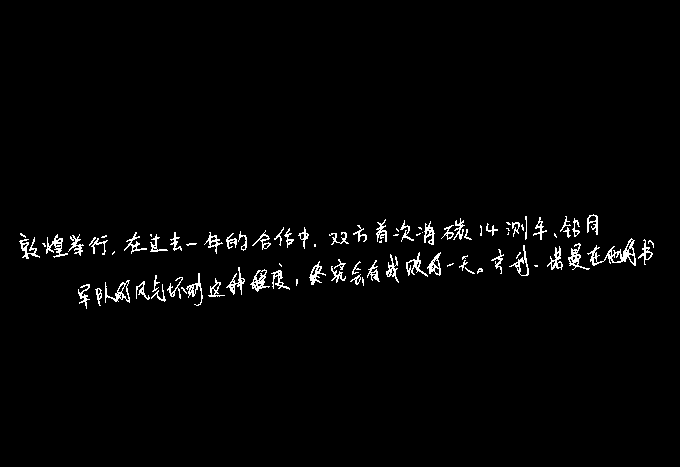 敦煌举行,在过去一年的合作中,双方首次将碳14测年、铅同
军队的风气坏到这种程度,终究会有战败的一天。亨利·诺曼在他的书